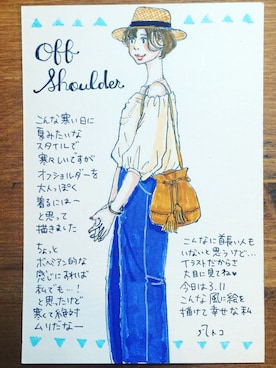 Off
Shoulder
こんな寒い日に
夏みたいな
スタイルで
寒々しいですが
オフショルダーを
大人っぽく
着るにはー
と思って
描きました
ちょっと
ボヘミアン的な
感じにすれば
私でも…!
と思ったけど
寒くて絶対
ムリだなー
こんなに首長い人も
いないと思うけど…
イラストだからさ
大目に見てね♥
今日は3.11
こんな風に絵を
描けて幸せな私